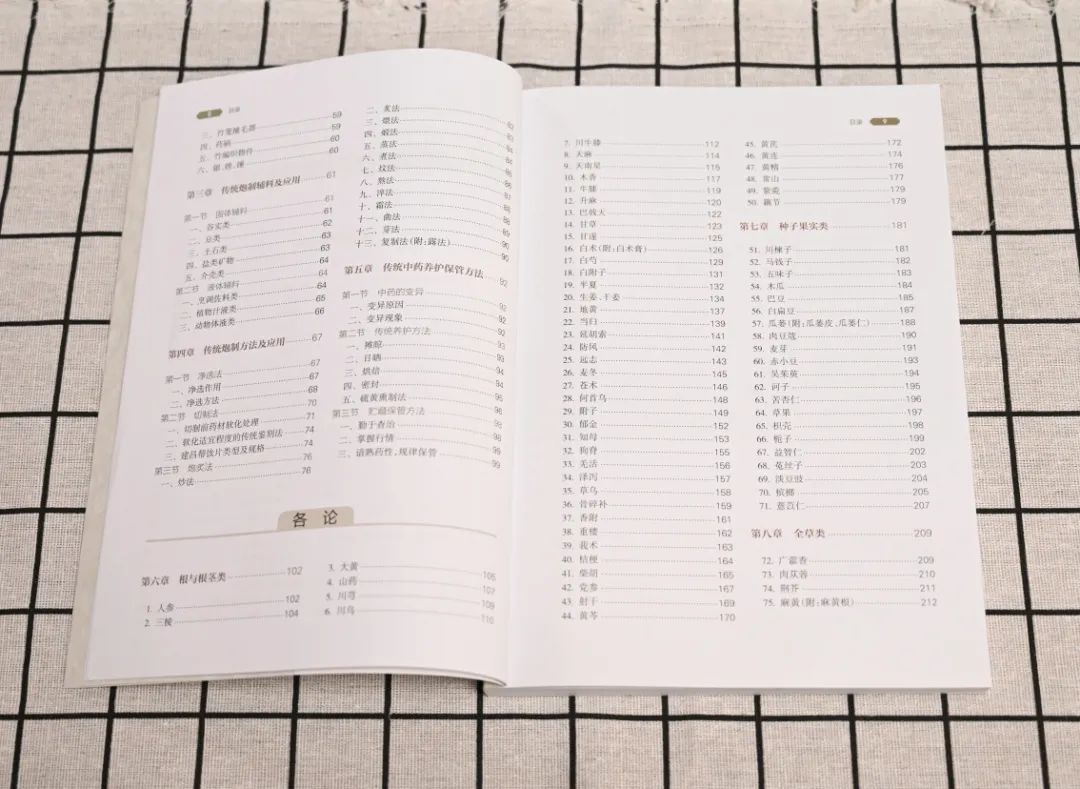 8 目录
三、竹笼撞毛器 59
四、药碾 59
五、竹编织物件 60
六、锄、磅、锤 60
第三章 传统炮制辅料及应用 61
第一节 固体辅料 61
一、谷实类 61
二、豆类 62
三、土石类 63
四、盐类矿物 63
五、介壳类 64
第二节 液体辅料 64
一、烹调佐料类 64
二、植物汁液类 65
三、动物体液类 66
第四章 传统炮制方法及应用 67
第一节 净选法 67
一、净选作用 67
二、净选方法 68
第二节 切制法 70
一、切制前药材软化处理 71
二、软化适宜程度的传统鉴别法 74
三、建昌帮饮片类型及规格 74
第三节 炮炙法 76
一、炒法 76
二、炙法 82
三、煨法 83
四、煅法 84
五、蒸法 84
六、煮法 85
七、炆法 86
八、熬法 86
九、淬法 87
十、霜法 88
十一、曲法 88
十二、芽法 89
十三、复制法(附:露法) 90
第五章 传统中药养护保管方法 92
第一节 中药的变异 92
一、变异原因 92
二、变异现象 92
第二节 传统养护方法 93
一、摊晾 93
二、日晒 93
三、烘焙 94
四、密封 94
五、硫黄熏制法 95
第三节 贮藏保管方法 96
一、勤于查治 96
二、掌握行情 98
三、谙熟药性,规律保管 99
各 论
第六章 根与根茎类 102
1. 人参 102
2. 三棱 104
3. 大黄 105
4. 山药 107
5. 川芎 109
6. 川乌 110
目录 9
7. 川牛膝 112
8. 天麻 114
9. 天南星 115
10. 木香 117
11. 牛膝 119
12. 升麻 120
13. 巴戟天 122
14. 甘草 123
15. 甘遂 125
16. 白术(附:白术膏) 126
17. 白芍 129
18. 白附子 131
19. 半夏 132
20. 生姜、干姜 134
21. 地黄 137
22. 当归 139
23. 延胡索 141
24. 防风 142
25. 远志 143
26. 麦冬 145
27. 苍术 146
28. 何首乌 148
29. 附子 149
30. 郁金 152
31. 知母 153
32. 狗脊 155
33. 羌活 156
34. 泽泻 157
35. 草乌 158
36. 骨碎补 159
37. 香附 161
38. 重楼 162
39. 莪术 163
40. 桔梗 164
41. 柴胡 165
42. 党参 167
43. 射干 169
44. 黄芩 170
45. 黄芪 172
46. 黄连 174
47. 黄精 176
48. 常山 177
49. 紫菀 179
50. 藕节 179
第七章 种子果实类 181
51. 川楝子 181
52. 马钱子 182
53. 五味子 183
54. 木瓜 184
55. 巴豆 185
56. 白扁豆 187
57. 瓜蒌(附:瓜蒌皮、瓜蒌仁) 188
58. 肉豆蔻 190
59. 麦芽 191
60. 赤小豆 193
61. 吴茱萸 194
62. 诃子 195
63. 苦杏仁 196
64. 草果 197
65. 枳壳 198
66. 栀子 199
67. 益智仁 202
68. 菟丝子 203
69. 淡豆豉 204
70. 槟榔 205
71. 薏苡仁 207
第八章 全草类 209
72. 广藿香 209
73. 肉苁蓉 210
74. 荆芥 211
75. 麻黄(附:麻黄根) 212